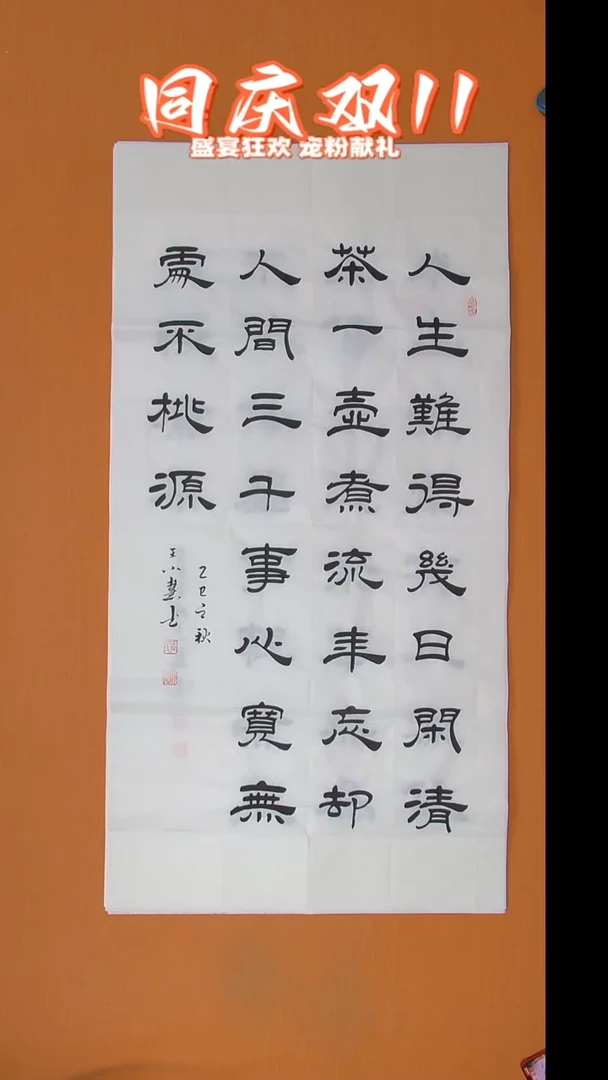 同庆双11
盛宴狂欢 宠粉献礼
人生難得幾日閑清
茶一壺煮流年忘却
人間三千事心寬無
處不桃源
乙巳之秋
王小慧书